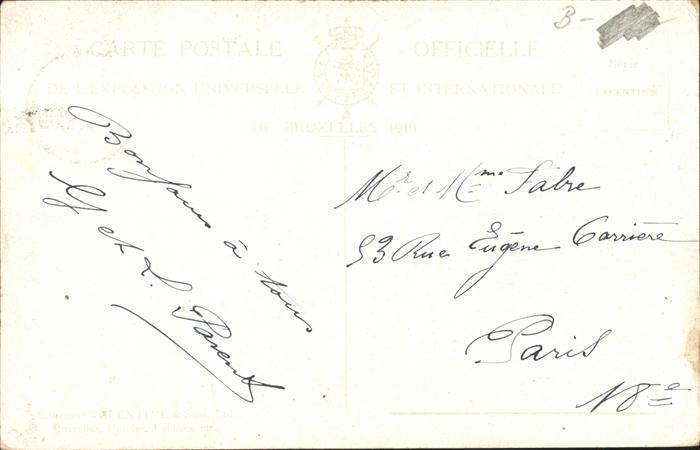 B-
CARTE POSTALE OFFICIELLE
DE L'EXPOSITION UNIVERSELLE ET INTERNATIONALE
DE BRUXELLES 1910
Série
VALENTINE
Bonjour à tous
G et L. Parent
Mr. et Mme Fabre
53 Rue Eugène Carrière
Paris
18e
VALENTINE & Sons, Ltd.
Bruxelles, Dundee, Londres, etc.